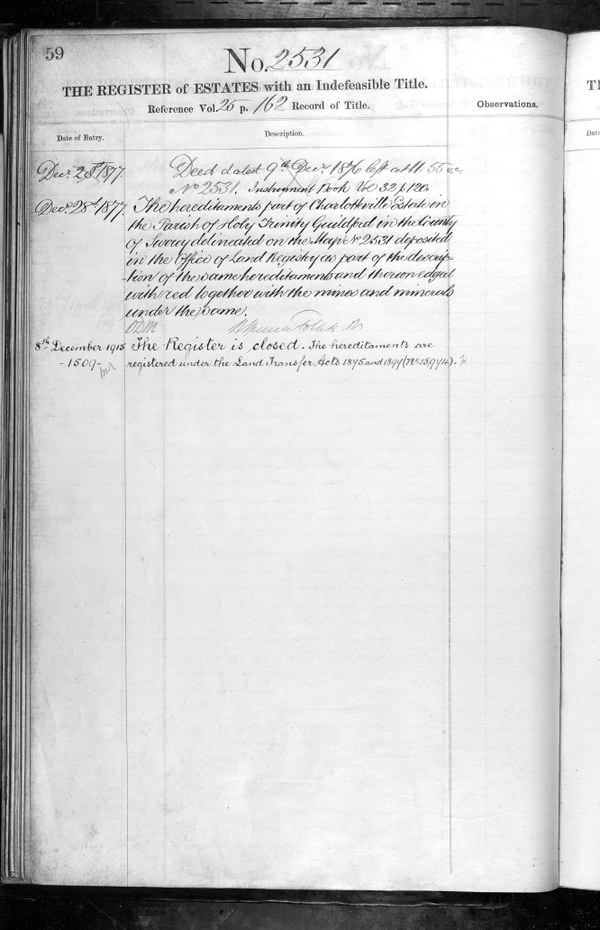 59
No. 2531
THE REGISTER of ESTATES with an Indefeasible Title.
Reference Vol. 25 p. 162 Record of Title.
Observations.
Date of Entry.
Description.
Decr. 28th 1877. Deed dated 9th Decr. 1876 left at 11.55
No 2531. Instrument Book Vol 32 p 120.
Decr. 28th 1877. The hereditaments part of Charlottville Estate in
the Parish of Holy Trinity Guildford in the County
of Surrey delineated on the Map No 2531 deposited
in the Office of Land Registry as part of the descrip-
-tion of the same hereditaments and thereon edged
with red together with the mines and minerals
under the same.
8th December 1915 The Register is closed. The hereditaments are
-1509- registered under the Land Transfer Acts 1875 and 1897